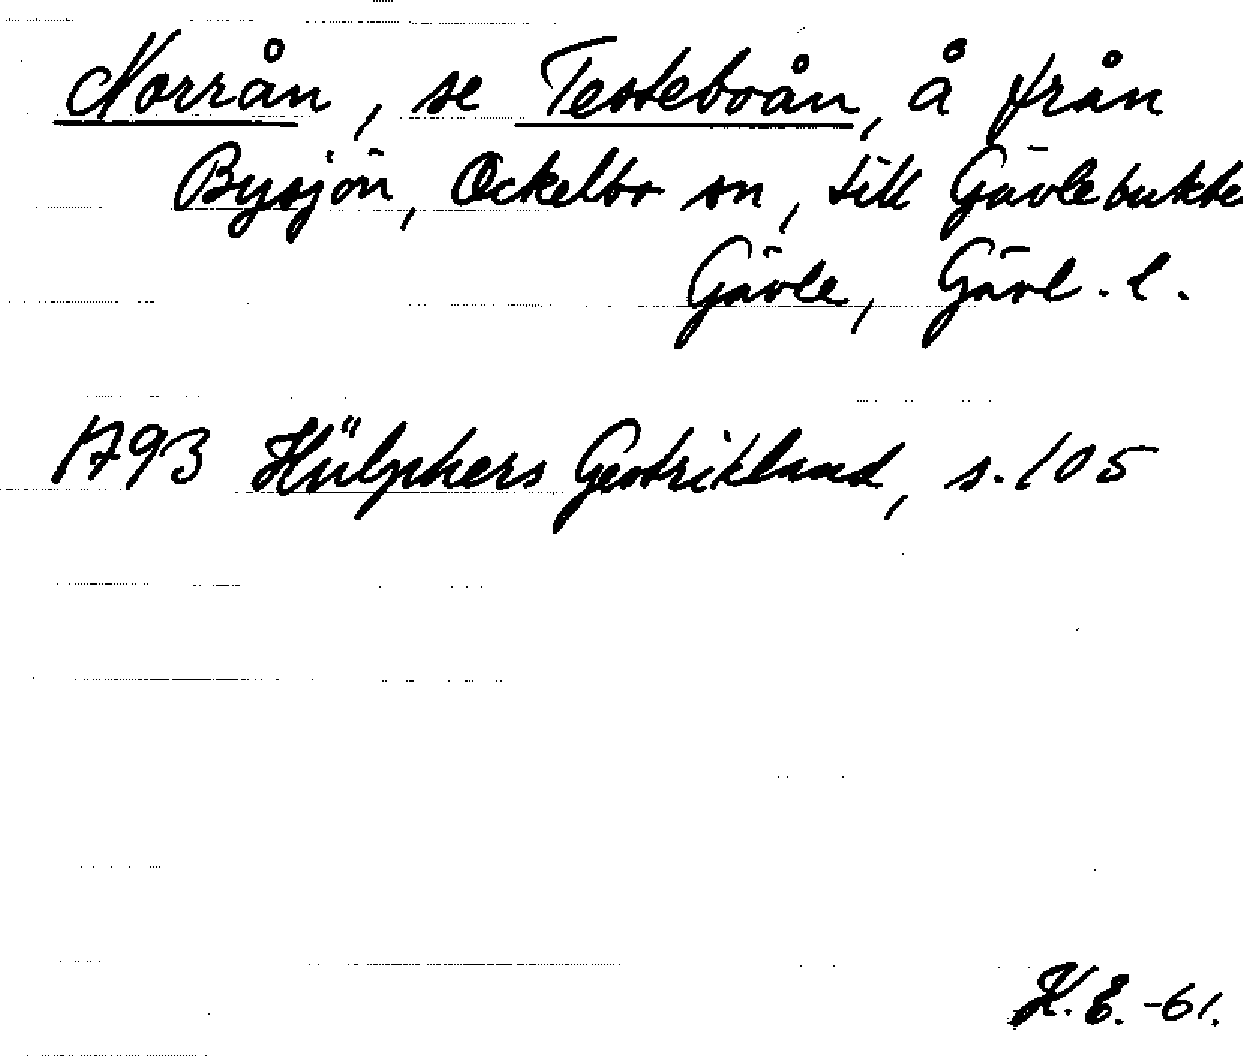 Norrån, se Testeboån, å från
Bysjön, Ockelbo sn, till Gävlebukte
Gävle, Gävl. l.
1793 Hülphers Gestrikland, s. 105
K.E. -61.